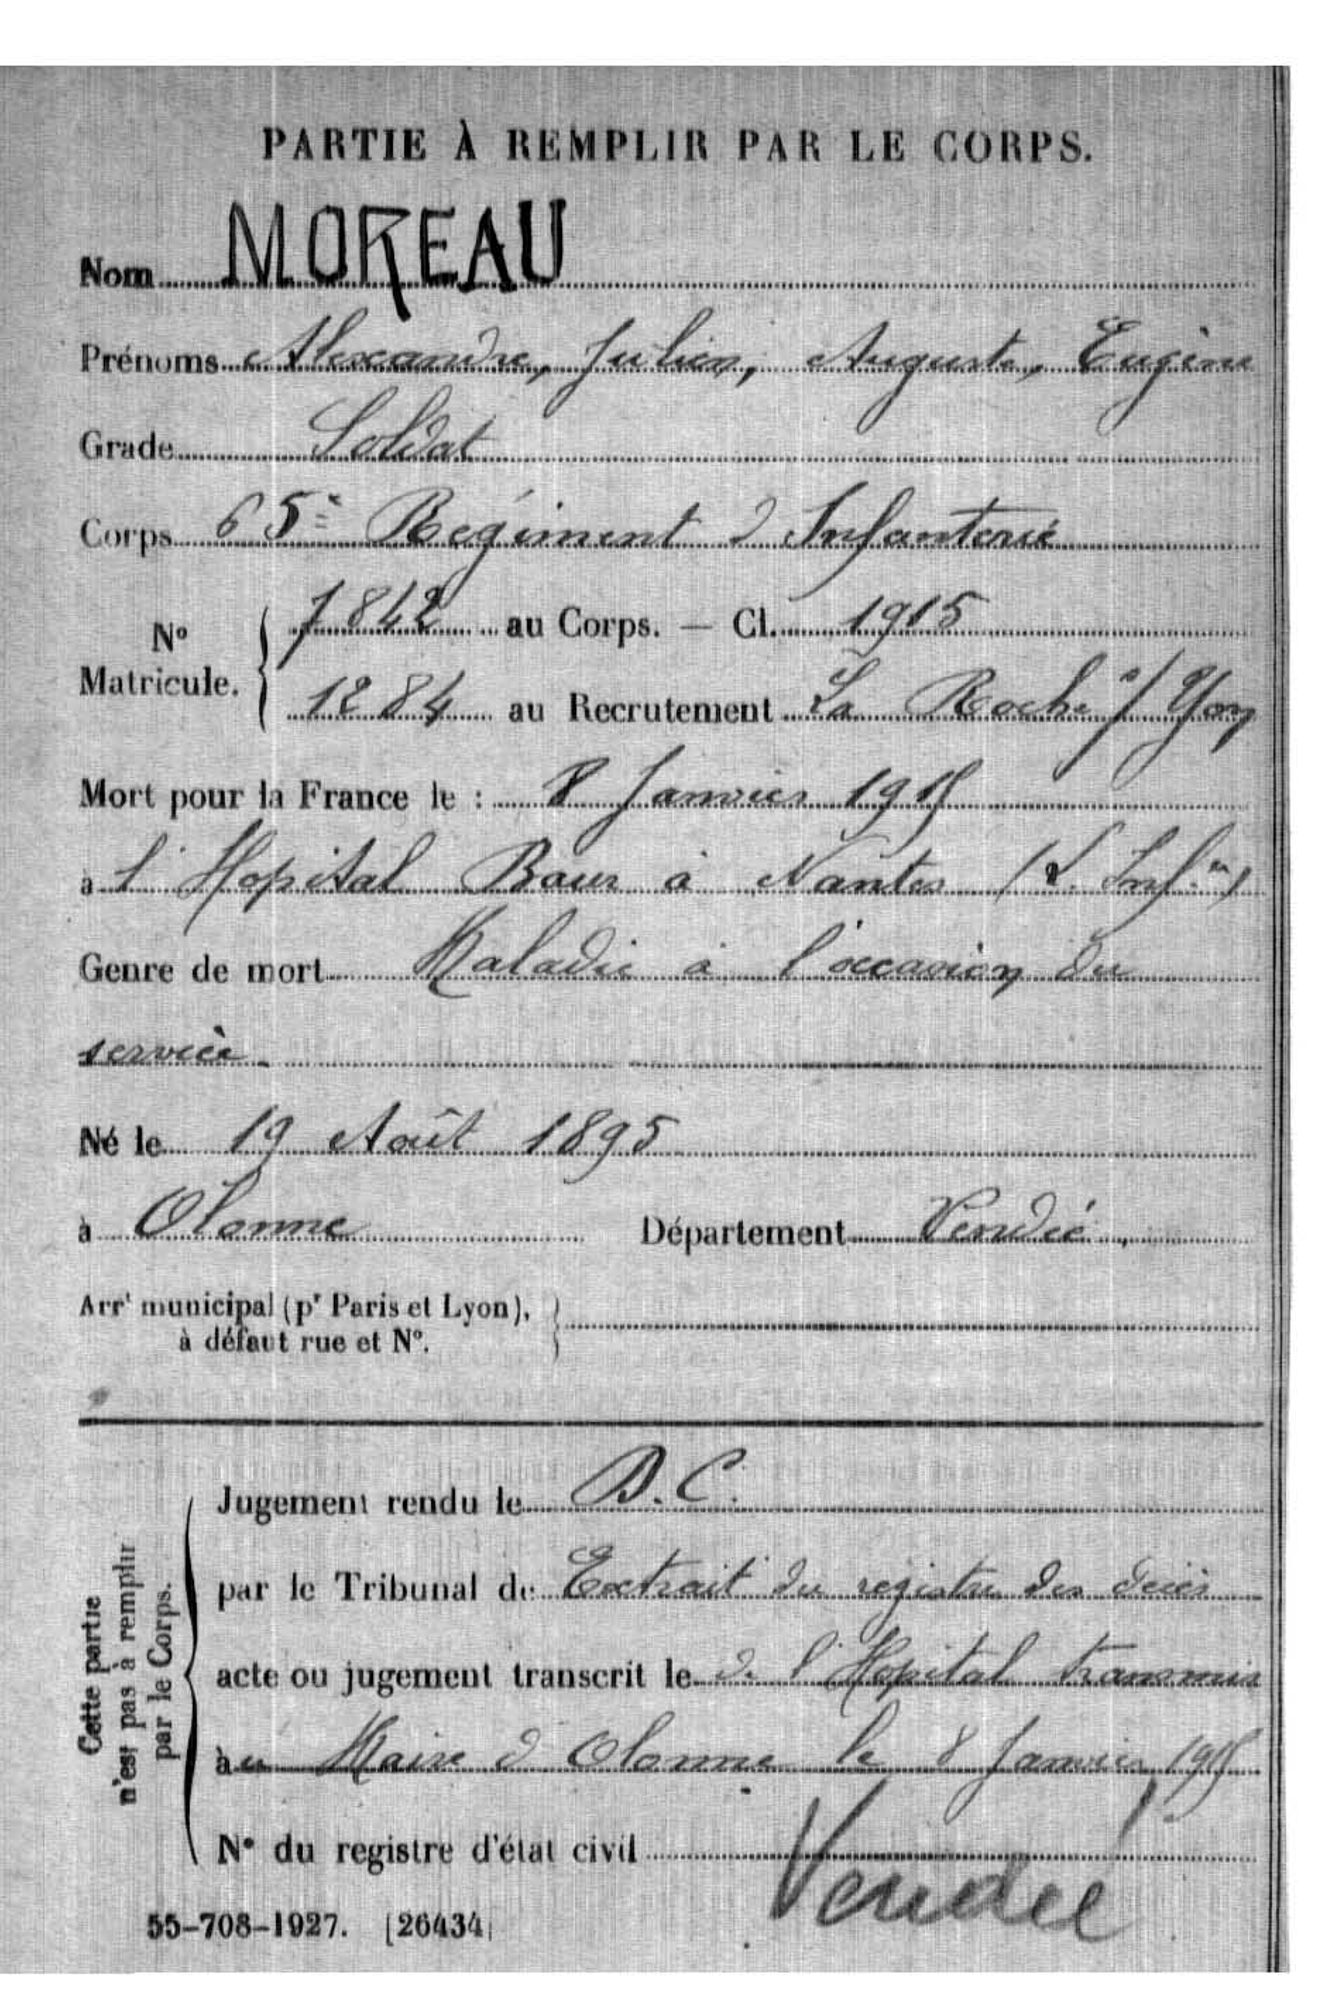 PARTIE À REMPLIR PAR LE CORPS.
Nom MOREAU
Prénoms Alexandre, Julien, Auguste, Eugène
Grade Soldat
Corps 65e Régiment d'Infanterie
No Matricule. { 7842 au Corps. — Cl. 1915
1284 au Recrutement La Roche s/ Yon
Mort pour la France le : 8 Janvier 1915
à l'Hopital Baur à Nantes (L. Infre)
Genre de mort Maladie à l'occasion du
service
Né le 19 Août 1895
à Olonne Département Vendée
Arrt municipal (pr Paris et Lyon),
à défaut rue et No.
Cette partie
n'est pas à remplir
par le Corps.
Jugement rendu le D.C.
par le Tribunal de Extrait du registre des décès
acte ou jugement transcrit le de l'Hopital transmis
à u Maire d'Olonne le 8 Janvier 1915
No du registre d'état civil
Vendée
55-708-1927. [26434]